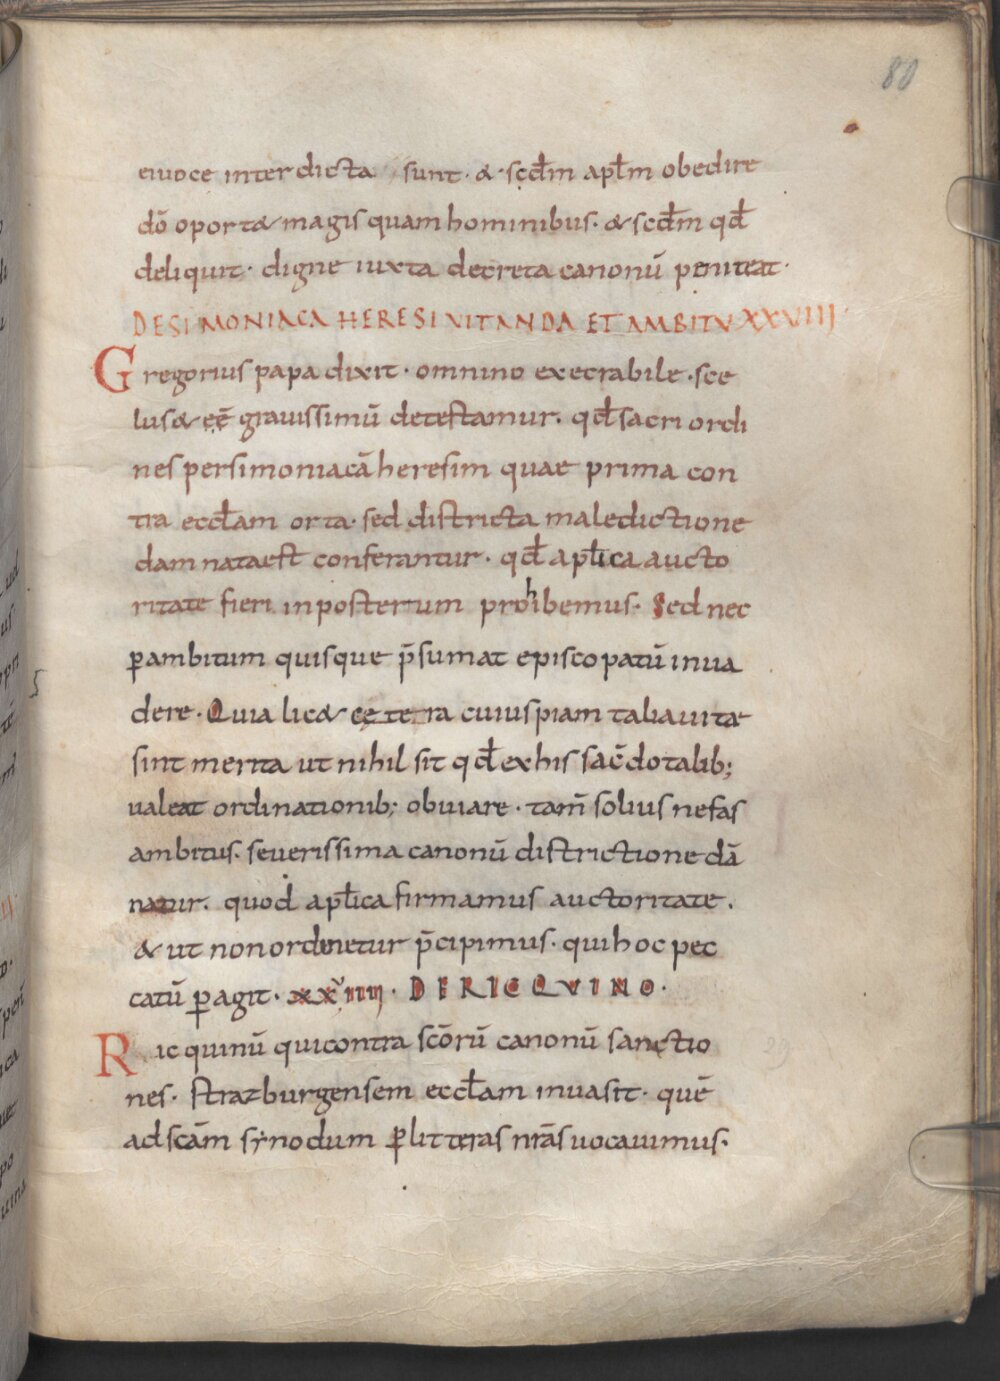 80
ei uoce interdicta sunt · & · scdm̄ apl̄m obedire
dō oport& magis quam hominibus · & scdm̄ qđ
deliquit · digne iuxta decreta canonū peniteat ·
DE SIMONIACA HERESI VITANDA ET AMBITV XXVIIII
Gregorius papa dixit · omnino execrabile · sce
lus & ee᷒̄ grauissimū detestamur · qđ sacri ordi
nes per simoniacā heresim quae prima con
tra eccl̄am orta · sed districta maledictione
damnata est conferantur · qđ apl̄ica aucto
ritate fieri in posterum prohibemus · Sed nec
ꝑ ambitum quisque p̄sumat episcopatū inua
dere · Quia lic& cetera cuiuspiam talia uitae
sint merita ut nihil sit qđ ex his sac̄dotalib;
ualeat ordinationib; obuiare · tam̄ solius nefas
ambitus · seuerissima canonū districtione dā
natur · quod apl̄ica firmamus auctoritate ·
& ut non ordinetur p̄cipimus · qui hoc pec
catū ꝑagit · xxiiii · DE RICQVINO ·
Ricquinū qui contra scōrū canonū sanctio
nes · strazburgensem eccl̄am inuasit · quē
ad scām synodum ꝑ litteras nrās uocauimus ·